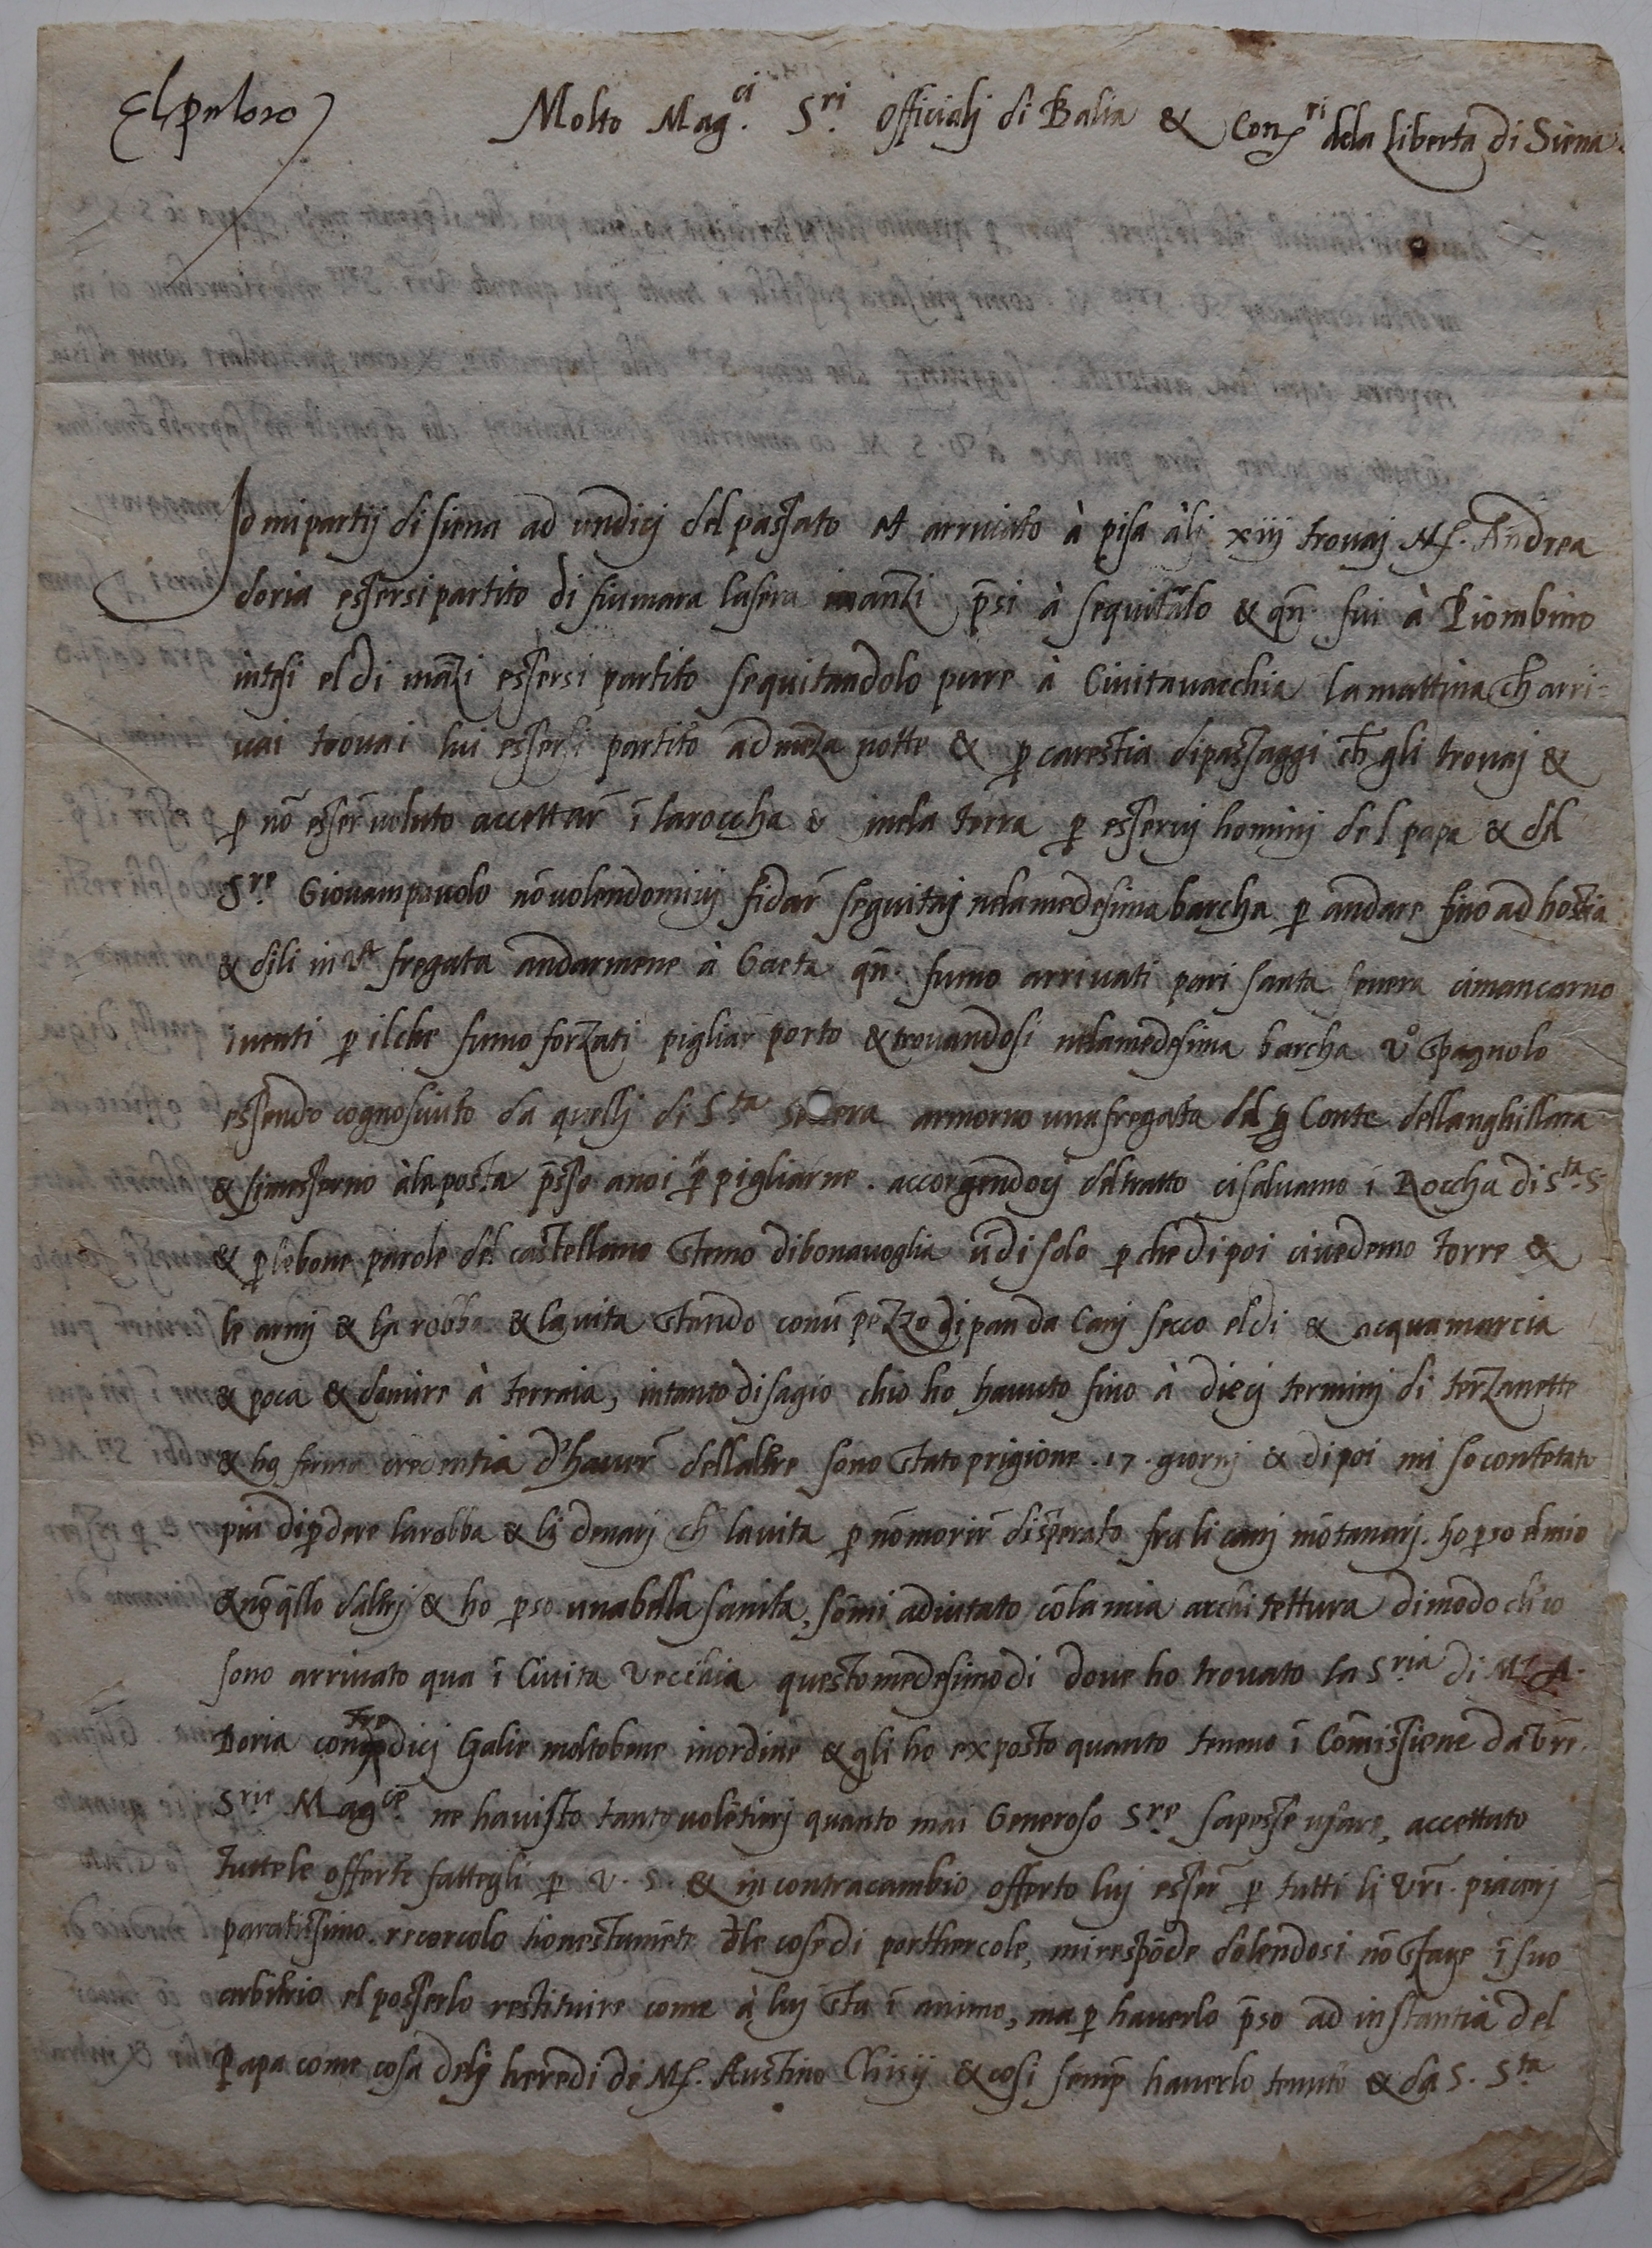 El peloro
Molto Mag.ci S.ri Officialj di Balia & Cons.ri dela Liberta di Siena.
Io mi partij di Siena ad undicj del passato et arrivato à pisa àlj xiij trovaj Ms. Andrea
doria essersi partito di fiumara lasera inanzi p̄si à sequitarlo & qn̄ fui à Piombino
intesi el di inanzi essersi partito sequitandolo pure à Civitavacchia la mattina ch arri=
vai trovai lui essersi partito ad meza notte & p carestia di passaggi ch gli trovaj &
p nō esser̄ voluto accettar̄ ī la roccha & inela terra p esservj hominj del papa & del
S.re Giovampavolo nō volendomivj fidar̄ seguitaj nela medesima barcha p andare fino ad hostia
& dili in va fregata andarmene à Gaeta qn̄. fumo arrivati pari santa severa cimancarno
i venti p ilche fumo forzati pigliar porto & trovandosi nela medesima barcha vo spagnolo
essendo cognosciuto da quellj di S.ta severa armorno una fregata del Conte dellanghillara
& simesserno àla posta p̄sso anoi p pigliarne. accorgendocj del tratto cisalvamo ī Roccha di S.ta S
& p le bone parole del castellano stemo di bonavoglia ūdi solo p che dipoi civedemo torre &
le armj & la robba & la vita stando con ū pezzo di pan da Canj secco el di & acqua marcia
& poca & dormire à terraia, intanto disagio chio ho havuto fino à diecj terminj di terzanette
& ho ferma credentia d'haver̄ dellaltre sono stato prigione .17. giornj & dipoi mi so contētato
piu di pdere la robba & li denarj ch la vita p nō morir̄ disperato fra li canj mōtanarj. ho pso el mio
& nō q̄llo daltrj & ho pso una bella sanita, sōmi adiutato cō la mia architettura di modo ch io
sono arrivato qua ī Civita Vecchia questo medesimo di dove ho trovato la S.ria di M.r A.
Doria con tredicj Galie molto bene inordine & gli ho exposto quanto tenevo ī Cōmissione da vr̄e.
S.rie Mag.ce ne ha visto tanto volētierj quanto mai Generoso S.re sapesse usare, accettato
tutte le offerte fattegli p V. S. & in contracambio offerto luj esser̄ p tutti li vr̄i. piacerj
paratissimo. recercolo honestamēte dele cose di porthercole, mi respōde dolendosi nō stare ī suo
arbitrio el posserlo restituire come à luj sta ī animo, ma p haverlo p̄so ad instantia del
Papa come cosa delj heredi de Ms. Austino Chisij & cosi semp̄ haverlo tenuto & da S. S.ta